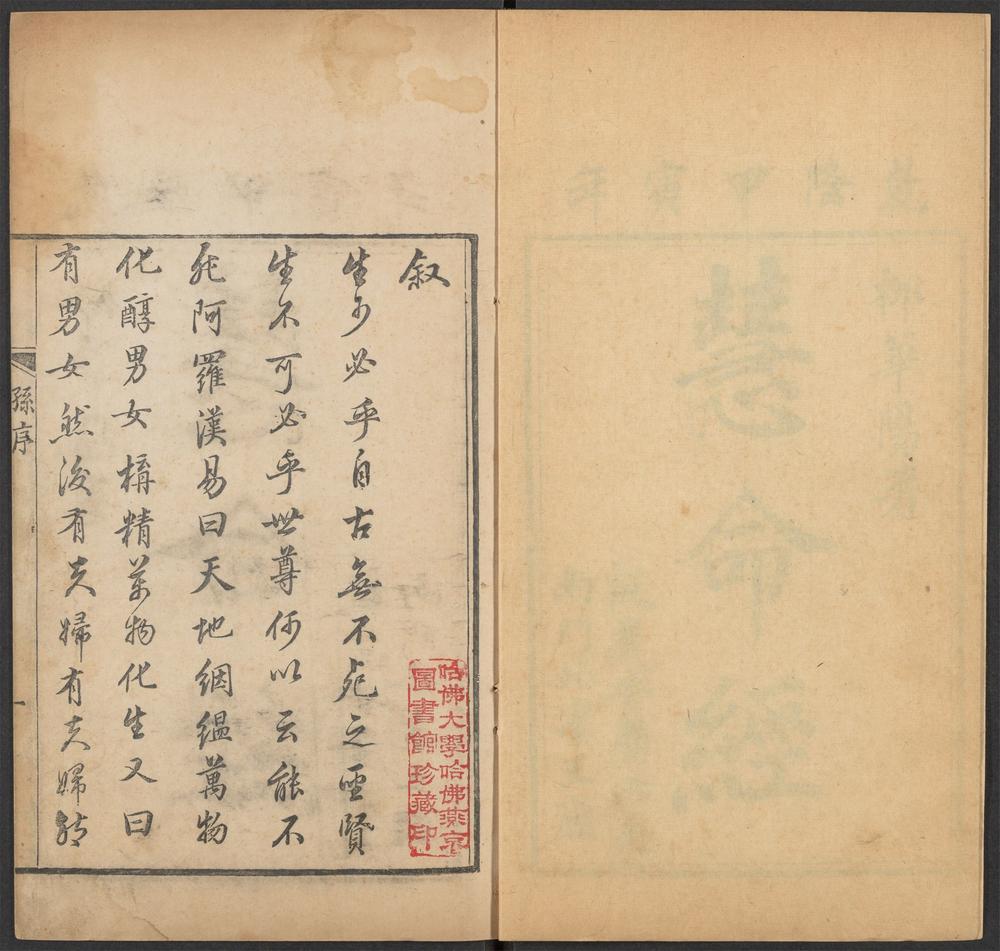 乾隆甲寅年
慧命經
叙
生可必乎自古無不死之聖賢
生不可必乎世尊何以云能不
死阿羅漢易曰天地絪縕萬物
化醇男女構精萬物化生又曰
有男女然後有夫婦有夫婦然
孫序
一
哈佛大學哈佛燕京
圖書館珍藏印